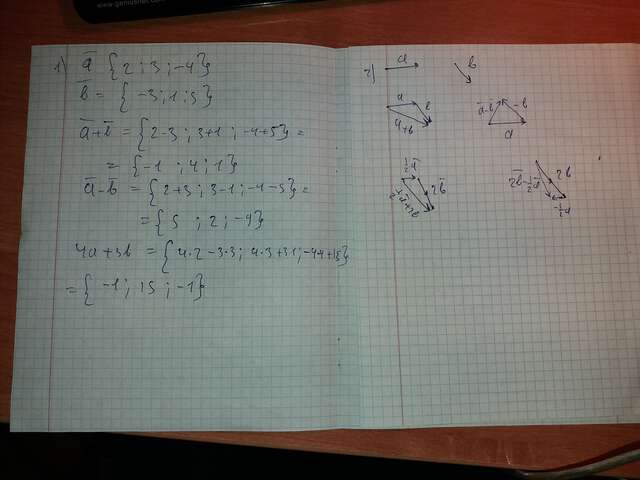 www.geniusnet.com
1) a̅ {2 ; 3 ; -4}
b̅ = {-3 ; 1 ; 5}
a̅+b̅ = {2-3 ; 3+1 ; -4+5} =
= {-1 ; 4 ; 1}
a̅-b̅ = {2+3 ; 3-1 ; -4-5} =
= {5 ; 2 ; -9}
4a+3b = {4·2-3·3; 4·3+3·1; -4·4+15}
= {-1 ; 15 ; -1}
2) a b
a b a+b
a̅-b̅ -b a
½a̅ 2b̅ ½a̅+2b
2b 2b̅-½a̅ -½a